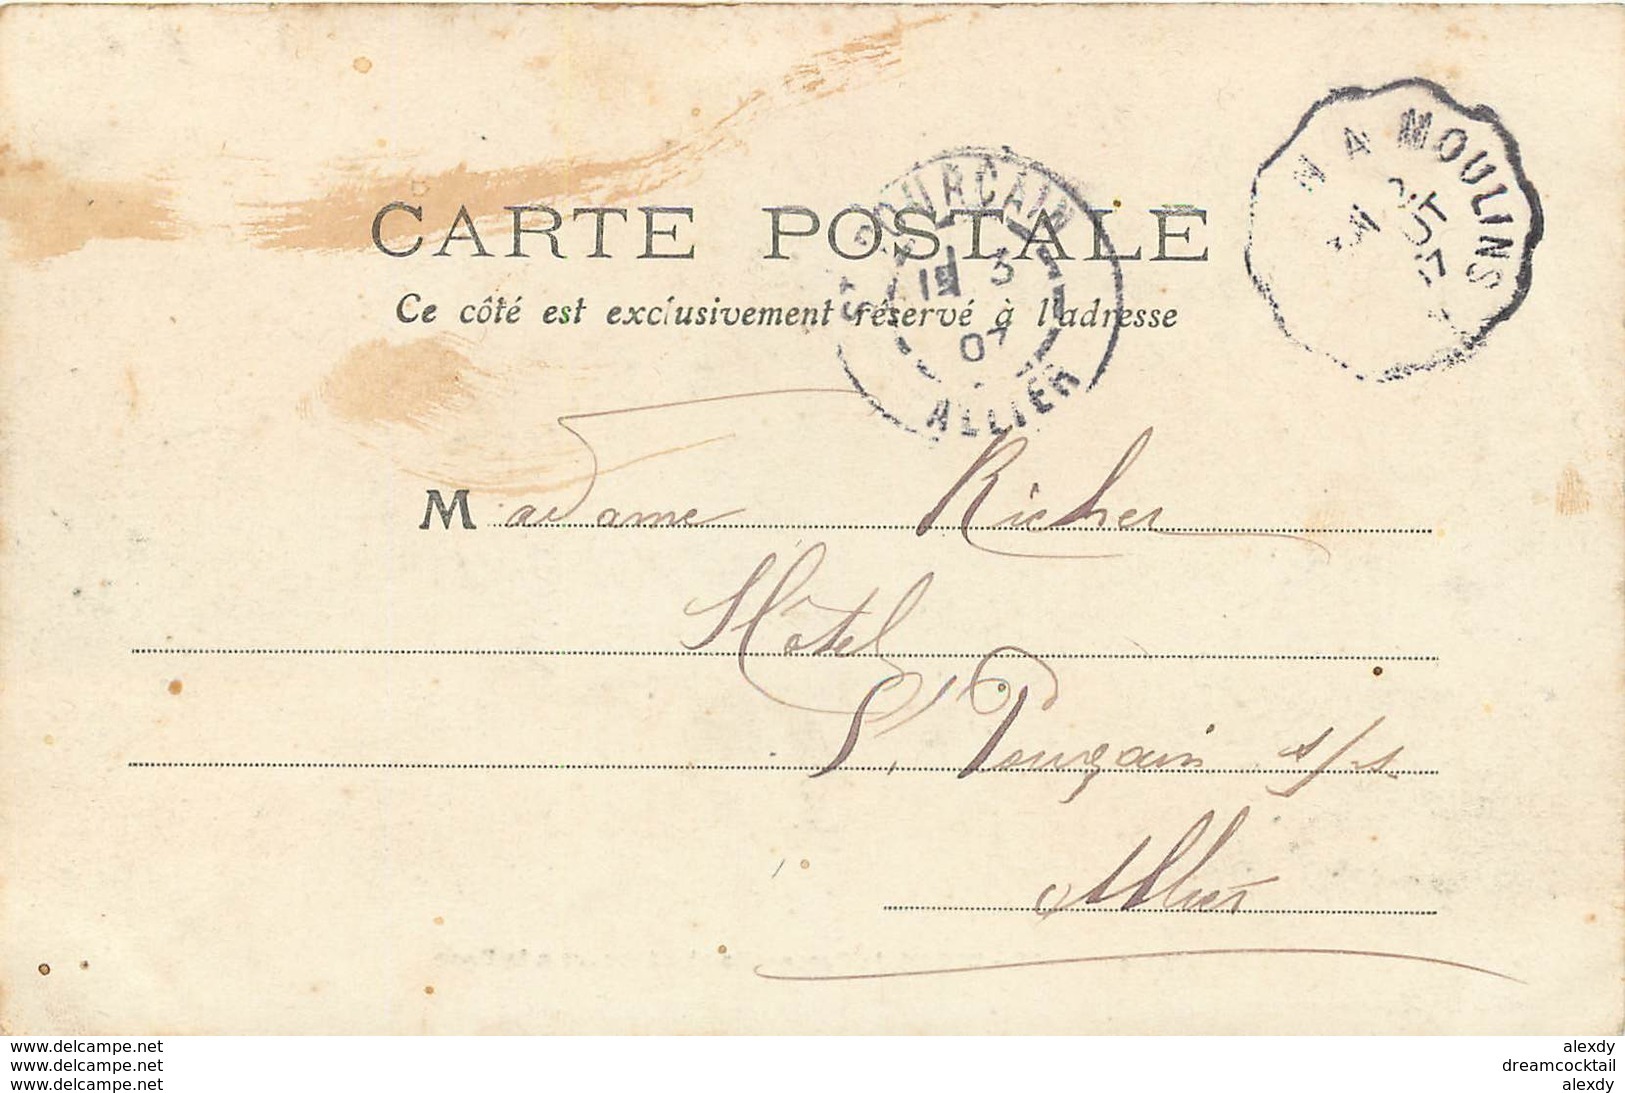 CARTE POSTALE
Ce côté est exclusivement réservé à l'adresse
ST POURÇAIN
3
07
ALLIER
N A MOULINS
Madame Richer
Hôtel
St Pourçain s/s
Allier
www.delcampe.net
www.delcampe.net
www.delcampe.net
alexdy
dreamcocktail
alexdy